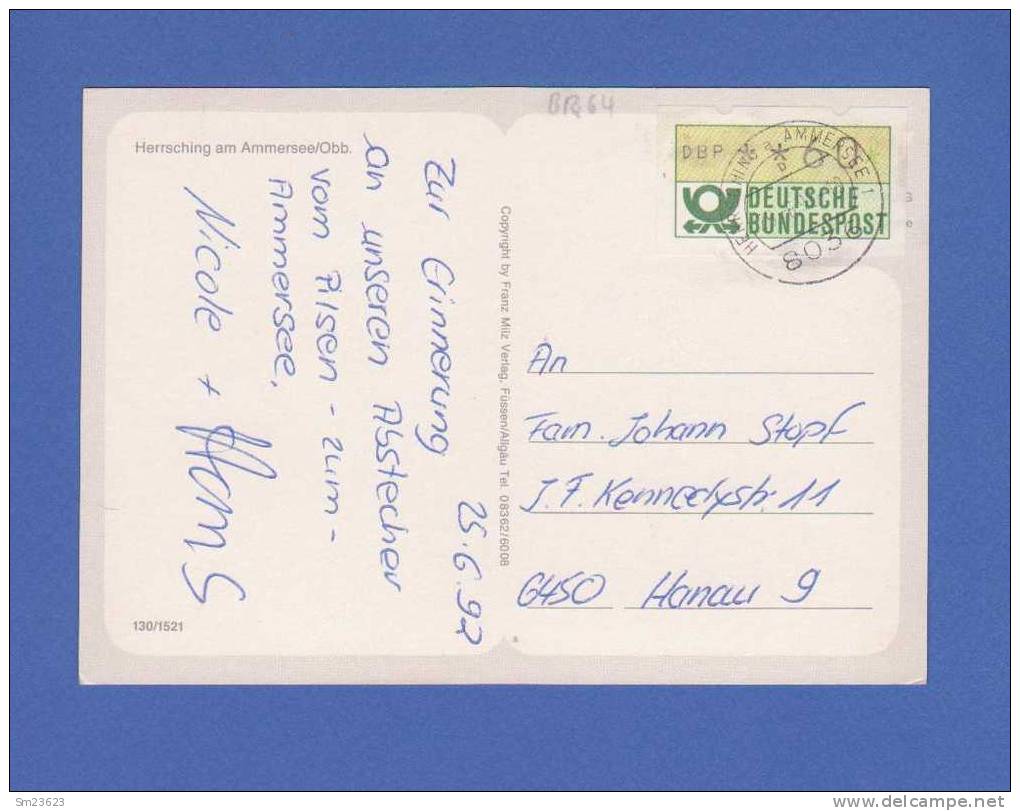 Herrsching am Ammersee/Obb.
BR 64
Zur Erinnerung
25.6.92
an unseren Abstecher
vom Pilsen - zum -
Ammersee.
Nicole +
130/1521
Copyright by Franz Milz Verlag, Füssen/Allgäu Tel. 08362/6008
DBP
DEUTSCHE
BUNDESPOST
AMMERSEE 1
8036
An
Fam. Johann Stopf
J. F. Kennedystr. 11
6450 Hanau 9
Sm23623
www.delcampe.net